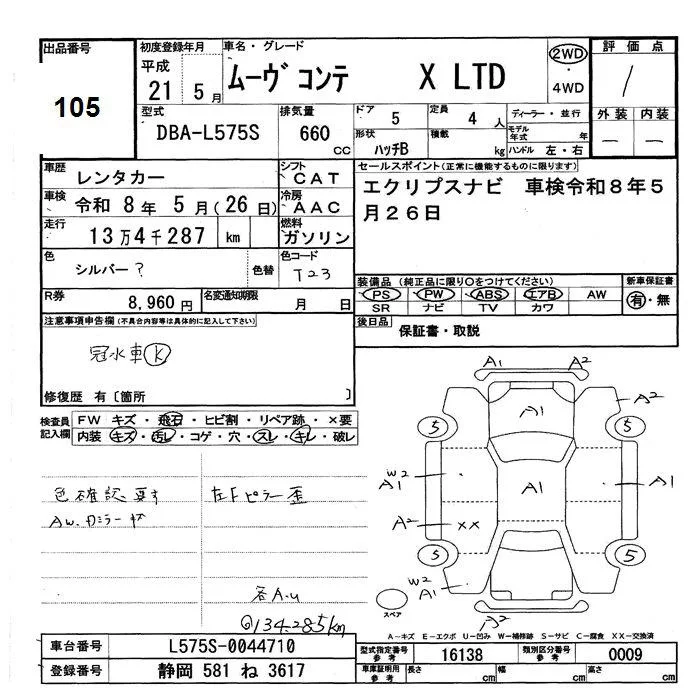 出品番号
105
初度登録年月
平成
21 5月
車名・グレード
ムーヴ コンテ X LTD
2WD
・
4WD
評価点
1
外装 内装
— —
型式
DBA-L575S
排気量
660 cc
ドア 5
定員 4 人
ディーラー・並行
形状 ハッチB
積載 kg
モデル年式 年
ハンドル 左・右
車歴 レンタカー
シフト CAT
車検 令和 8年 5月(26日)
冷房 AAC
走行 13万4千287 km
燃料 ガソリン
セールスポイント(正常に機能するものに限ります)
エクリプスナビ 車検令和8年5
月26日
色 シルバー? 色替
色コード T23
R券 8,960円
名変通知期限 月 日
装備品 (純正品に限り○をつけてください)
PS PW ABS エアB AW
SR ナビ TV カワ
新車保証書
有・無
後日品 保証書・取説
注意事項申告欄(不具合内容等は具体的に記入して下さい)
冠水車 K
修復歴 有〔箇所 〕
検査員記入欄
FW キズ・飛石・ヒビ割・リペア跡・×要
内装 キズ・汚レ・コゲ・穴・スレ・キレ・破レ
色確認要す 左Fピラー歪
各A.u
◎134.285km
A1 A2
A1 A2
5 5
W2
A1 A1 A1
A2 XX
5 5
W2
A1
A2
スペア
A-キズ E-エクボ U-凹み W-補修跡 S-サビ C-腐食 XX-交換済
車台番号 L575S-0044710
登録番号 静岡 581 ね 3617
型式指定番号 参考 16138
類別区分番号 参考 0009
車庫証明用 参考 長さ cm 幅 cm 高さ cm